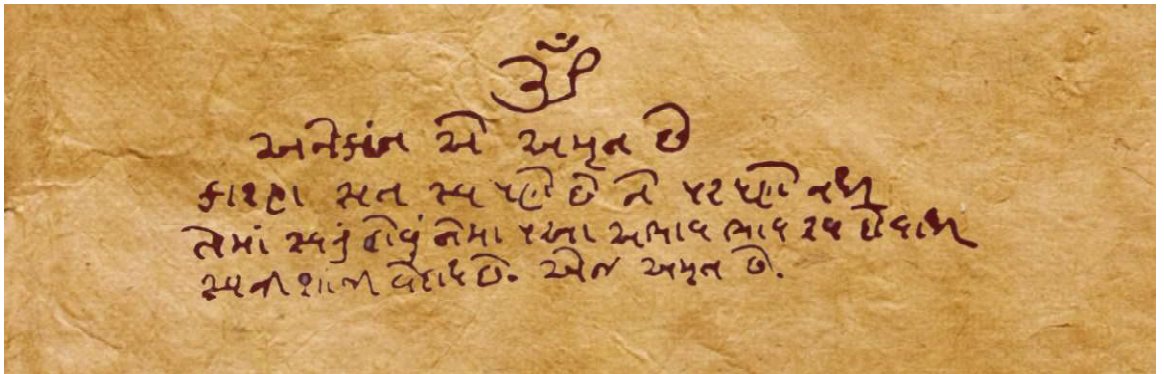 ૐ
અનેકાંત એ અમૃત છે
કારણ સત સ્વ પણે છે ને પર પણે નથી
તેમાં સ્વનું હોવું તેમાં અભાવ ભાવ
સ્વની શાંતી વેદાય છે. એજ અમૃત છે.